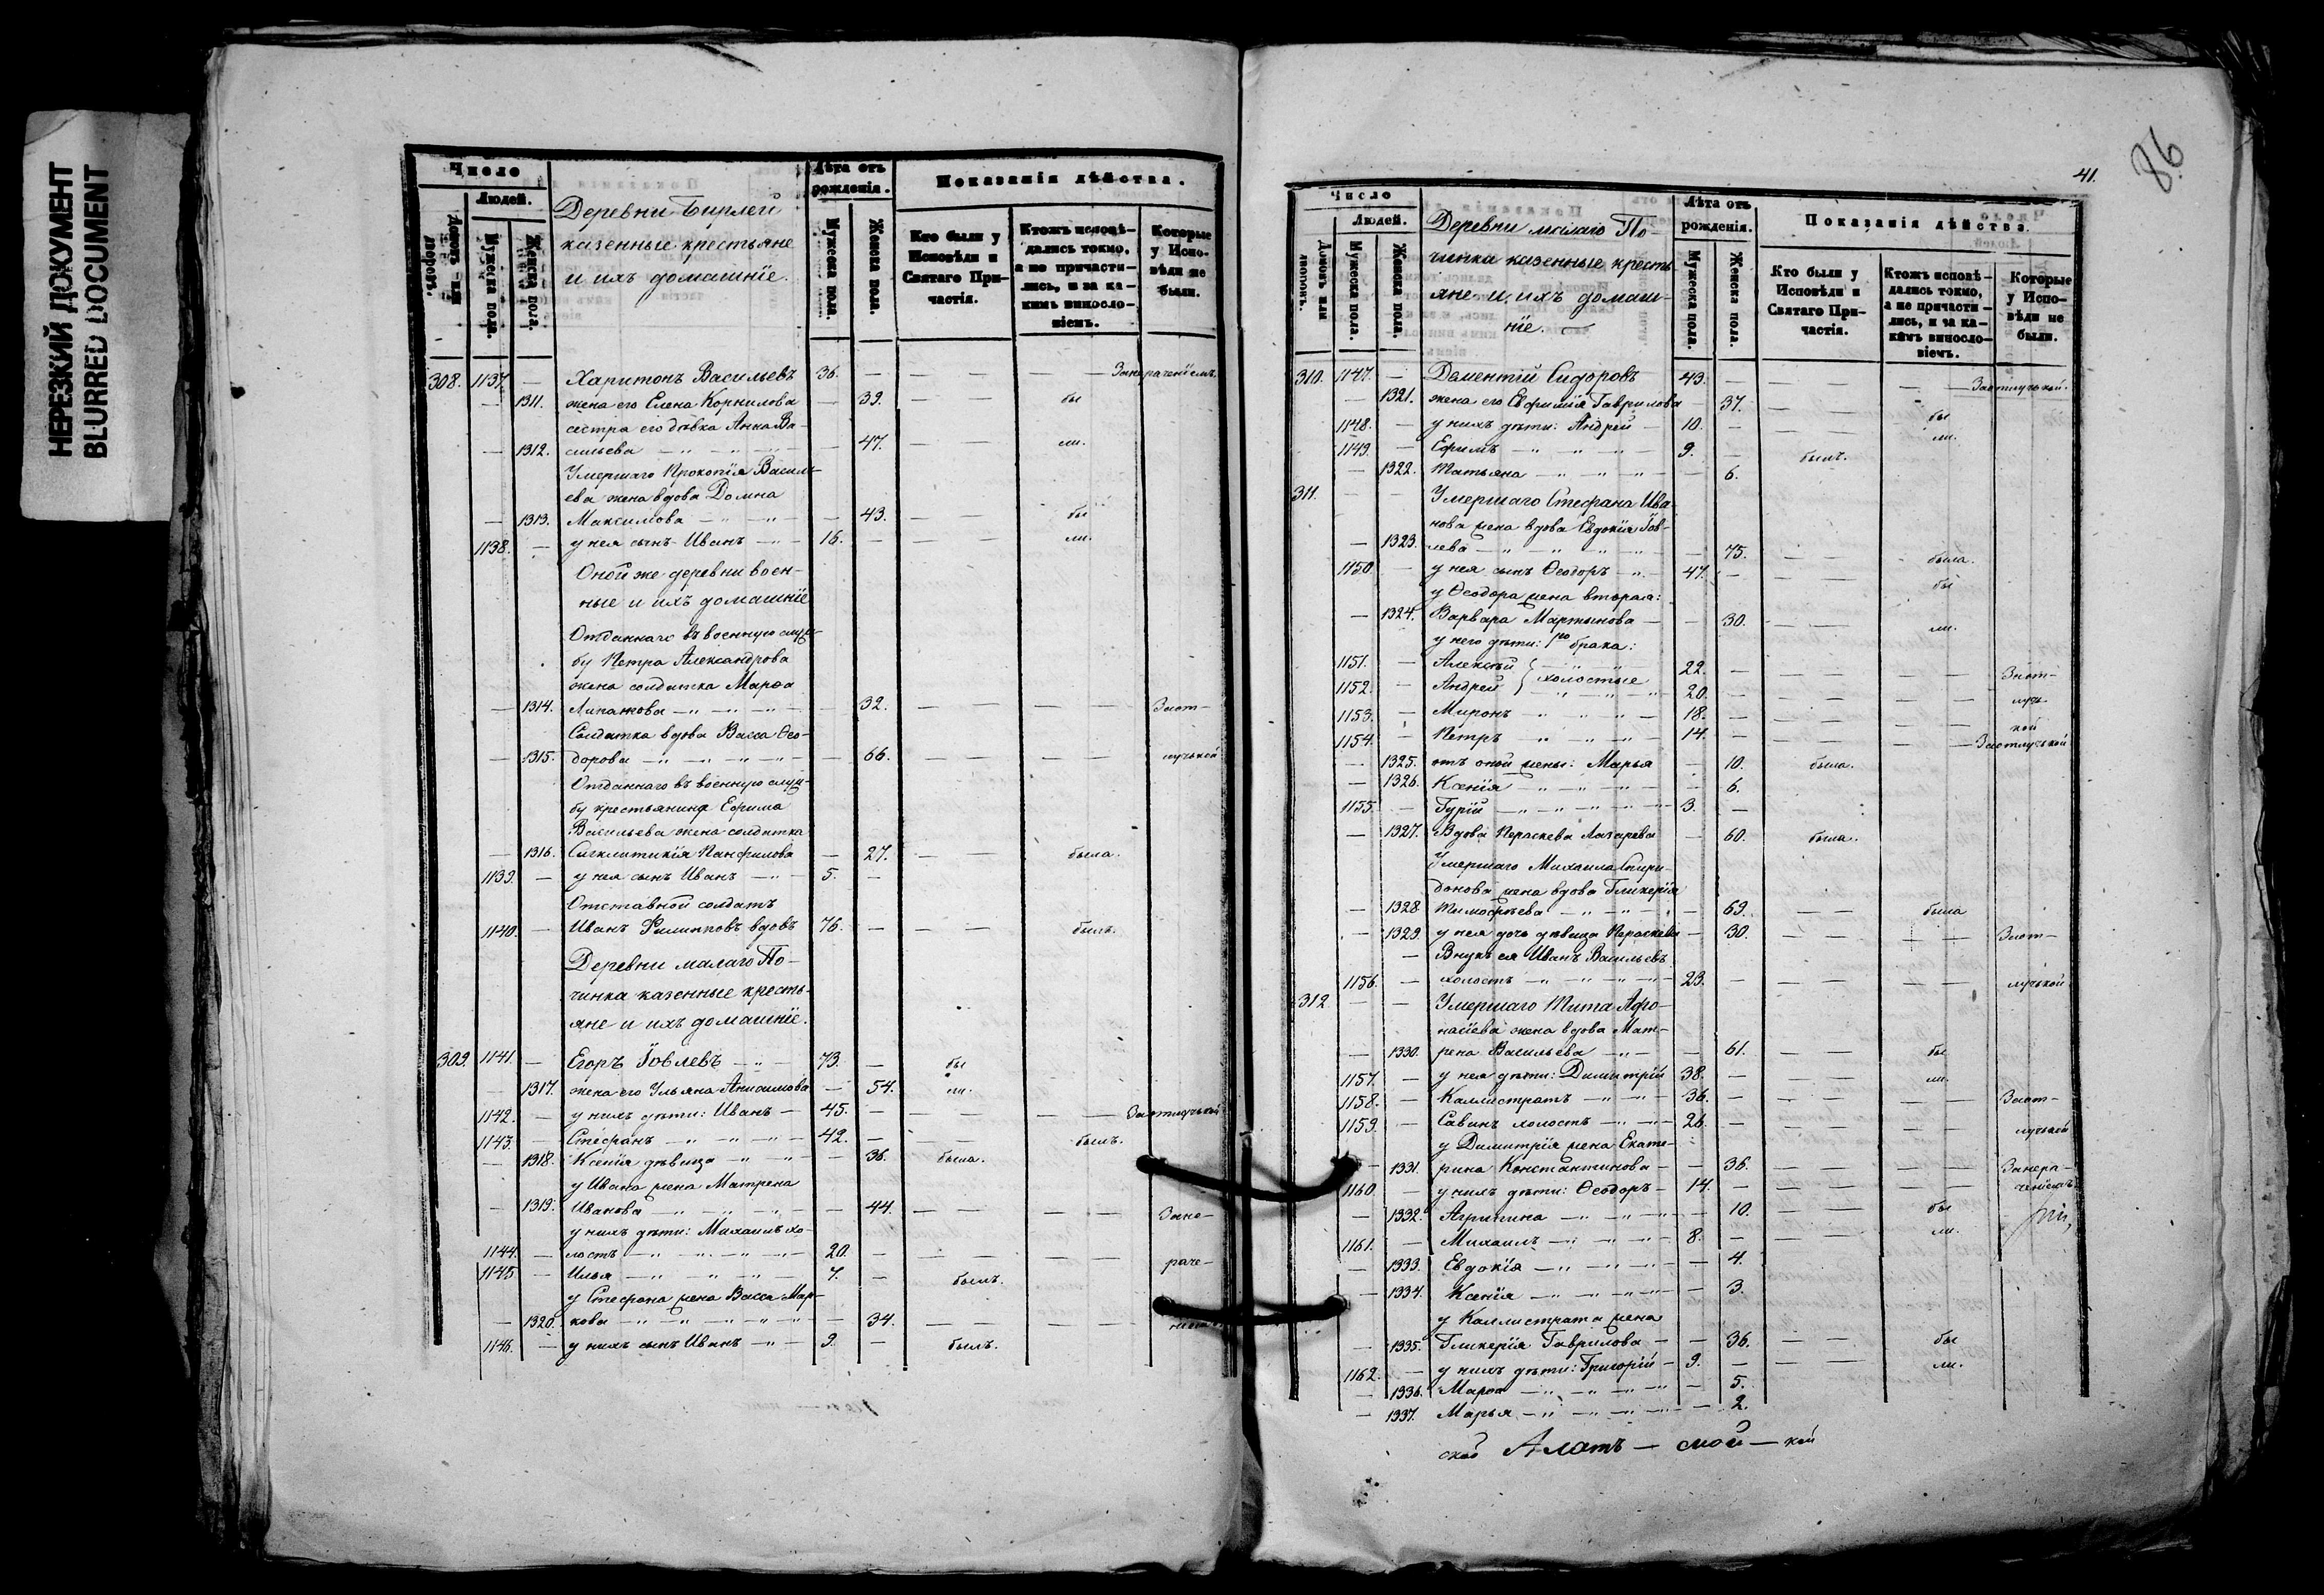 НЕРЕЗКИЙ ДОКУМЕНТ
BLURRED DOCUMENT
Число
Людей.
Домовъ или дворовъ.
Мужеска пола.
Женска пола.
Деревни Бирлей
казенные крестьяне
и ихъ домашніе.
Лѣта отъ рожденія.
Мужеска пола.
Женска пола.
Показанія дѣйства.
Кто были у Исповѣди и Святаго Причастія.
Ктожъ исповѣдались токмо, а не причастились, и за какимъ винословіемъ.
Которые у Исповѣди не были.
308. 1137. — Харитонъ Васильевъ 36. — — — — — Занерачениемъ
— 1311. жена его Елена Корнилова — 39. — — бы
сестра его дѣвка Анна Ва-
— 1312. сильева — 47. — — ли.
Умершаго Прокопія Василь-
ева жена вдова Домна
— 1313. Максимова — 43. — — бы
1138. — у нея сынъ Иванъ — 16. — — — ли.
Оной же деревни воен-
ные и ихъ домашніе
Отданнаго въ военную служ-
бу Петра Александрова
жена солдатка Марѳа
— 1314. — 32. — — — — Заот-
Солдатка вдова Васса Ѳео-
— 1315. дорова — 66. — — — — лучькой
Отданнаго въ военную служ-
бу крестьянина Ефима
Васильева жена солдатка
— 1316. Сигклитикія Панфилова — 27. — — была.
1139. — у нея сынъ Иванъ — 5. —
Отставной солдатъ
1140. — Иванъ Филипповъ вдовъ 76. — — — былъ.
Деревни малаго По-
чинка казенные кресть-
яне и ихъ домашніе.
309. 1141. — Егоръ Іовлевъ — 73. — бы
— 1317. жена его Ульяна Анисимова — 54. ли.
1142. — у нихъ дѣти: Иванъ — 45. — — — — — Заотлучькой
1143. — Стефанъ — 42. — — былъ.
— 1318. Ксенія дѣвица — 36. была.
у Ивана жена Матрена
— 1319. Иванова — 44. — — — — Зане-
у нихъ дѣти: Михаилъ хо-
1144. — лостъ — 20. — — — — —
1145 — Илья — 7. — былъ. раче-
у Стефана жена Васса Мар-
— 1320. кова — 34. — — — —
1146. — у нихъ сынъ Иванъ — 9. — былъ.
41.
86
Число
Людей.
Домовъ или дворовъ.
Мужеска пола.
Женска пола.
Деревни малаго По-
чинка казенные кресть-
яне и ихъ домаш-
ніе.
Лѣта отъ рожденія.
Мужеска пола.
Женска пола.
Показанія дѣйства.
Кто были у Исповѣди и Святаго Причастія.
Ктожъ исповѣдались токмо, а не причастились, и за какимъ винословіемъ.
Которые у Исповѣди не были.
310. 1147. — Доментій Сидоровъ 43. — — — — — Заотлучькой.
— 1321. жена его Евфимія Гаврилова — 37. — — бы
1148. — у нихъ дѣти: Андрей — 10. — — — ли.
1149. — Ефимъ — 9. — былъ.
— 1322. Татьяна — 6.
311. — — Умершаго Стефана Ива-
нова жена вдова Евдокія Іов-
— 1323. лева — 75. — — была.
1150. — у нея сынъ Ѳеодоръ — 47. — — — бы
у Ѳеодора жена вторая:
— 1324. Варвара Мартынова — 30. — — ли.
у него дѣти: 1го брака:
1151. — Алексѣй } холостые 22. — — — — — Заот-
1152. — Андрей } 20. — — — — — луч-
1153. — Миронъ — 18. — — — — — кой
1154. — Петръ — 14. — — — — — Заотлучькой
— 1325. отъ оной жены: Марья — 10. была.
— 1326. Ксенія — 6.
1155. — Гурій — 3. —
— 1327. Вдова Пераскева Лазарева — 60. была.
Умершаго Михаила Спири-
донова жена вдова Гликерія
— 1328. Тимофѣева — 69. — — была
— 1329. у нея дочь дѣвица Пераскева — 30. — — — — Заот-
— Внукъ ея Иванъ Васильевъ
1156. — холостъ — 23. — — — — — лучькой
312 — — Умершаго Тита Афо-
насіева жена вдова Мат-
— 1330. рена Васильева — 61. — — бы
1157. — у нея дѣти: Димитрій 38. — — — ли.
1158. — Каллистратъ — 36. — — — — — Заот-
1159. — Савинъ холостъ — 26. — — — — — лучькой
у Димитрія жена Екате-
— 1331. рина Константинова — 36. — — — — Занера-
1160. — у нихъ дѣти: Ѳеодоръ — 14. — — — — — ченіемъ
— 1332. Агрипина — 10. — — бы
1161. — Михаилъ — 8. — — — ли.
— 1333. Евдокія — 4.
— 1334. Ксенія — 3.
у Каллистрата жена
— 1335. Гликерія Гаврилова — 36. — — бы
1162. — у нихъ дѣти: Григорій — 9. — — — ли.
— 1336. Марѳа — 5.
— 1337. Марья — 2.